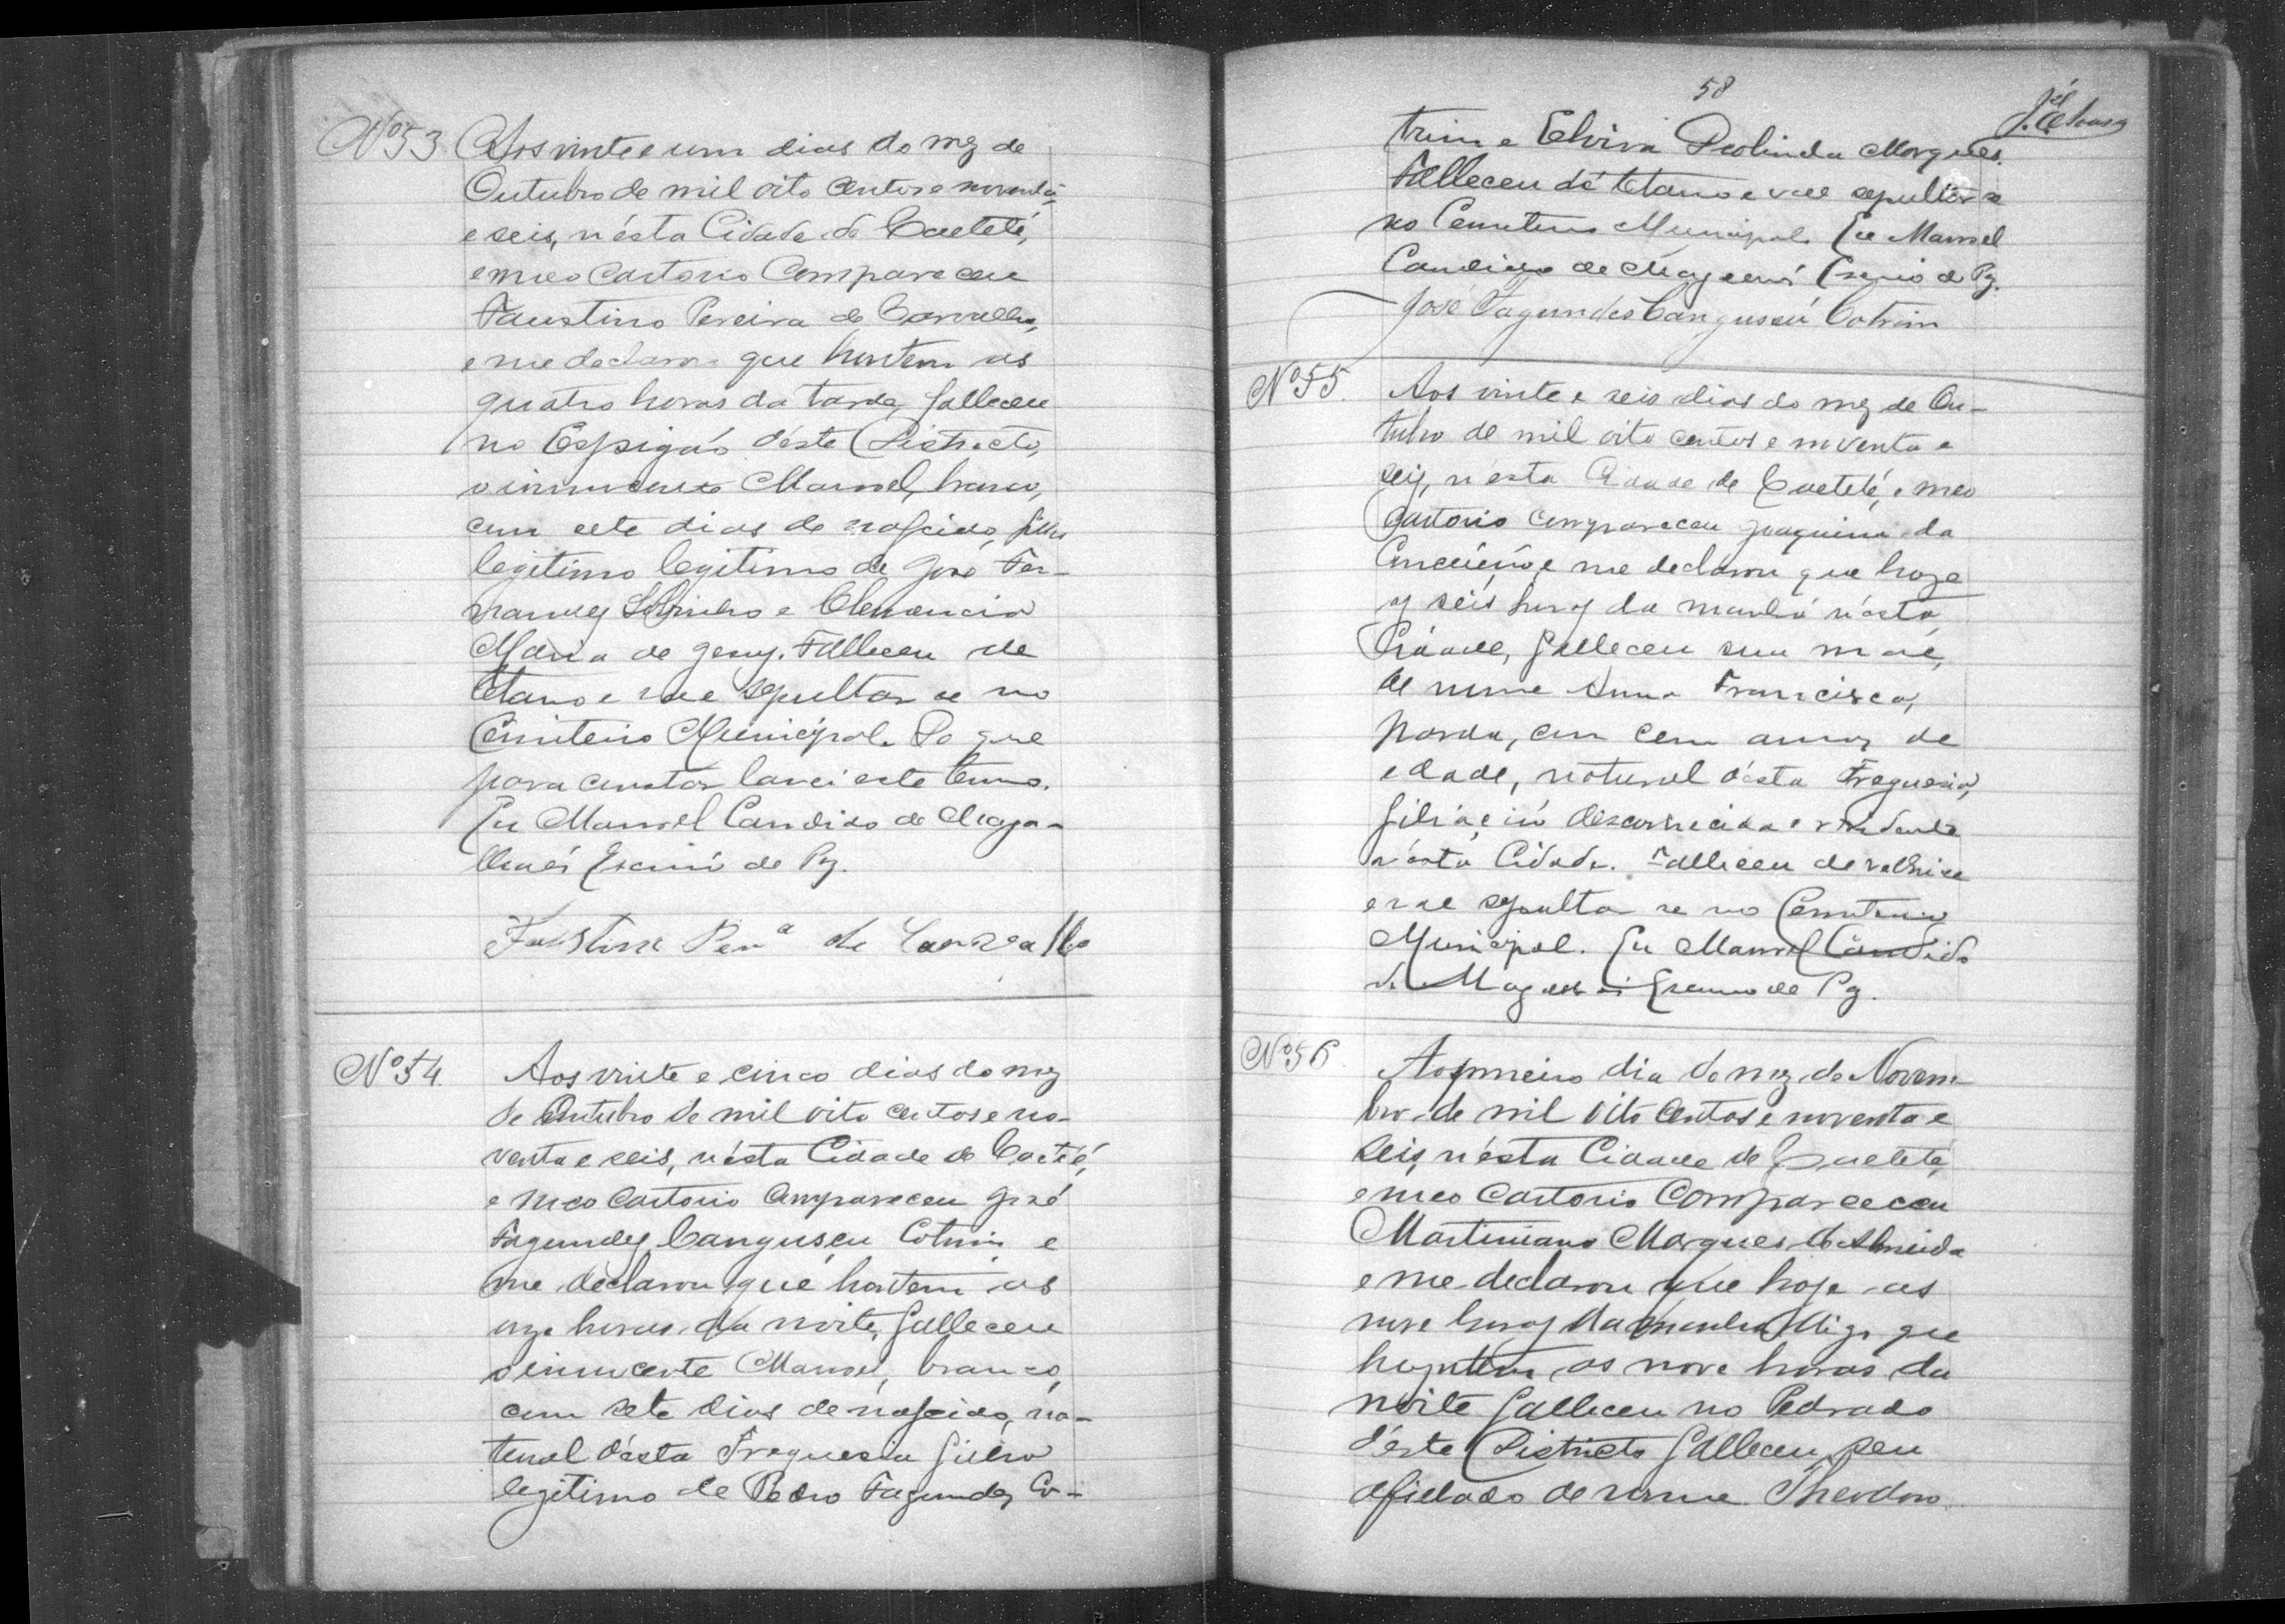 Nº 53 Aos vinte e um dias do mez de
Outubro de mil oito centos e noventa
e seis, n'ésta Cidade de Caeteté,
e meo Cartorio Compareceu
Faustino Pereira de Carvalho,
e me declarou que hontem as
quatro horas da tarde, falleceu
no Espigão d'éste Districto,
o innocente Manoel, branco,
com sete dias de nascido, filho
legitimo legitimo de José Fer-
nandes Sobrinho e Clemencia
Maria de Jesus. Falleceu de
tetano e vae sepultar se no
Cemiterio Municipal. Do que
para constar lancei este termo.
Eu Manoel Candido de Maga-
lhães Escrivão de Paz.
Faustino Perª de Carvalho
Nº 54. Aos vinte e cinco dias do mez
de Outubro de mil oito centos e no-
venta e seis, n'ésta Cidade de Caeteté,
e meo Cartorio Compareceu José
Fagundes Canguseu Cotrim e
me declarou que hontem as
onze horas da noite, falleceu
o innocente Manoel, branco,
com sete dias de nascido, na-
tural d'ésta Freguesia filho
legitimo de Pedro Fagundes Co-
58
trim e Elvira Deolinda Marques.
Falleceu de tetano e vae sepultar se
no Cemiterio Municipal. Eu Manoel
Candido de Magalhães Escrivão de Paz.
José Fagundes Cangussú Cotrim
Nº 55. Aos vinte e seis dias do mez de Ou-
tubro de mil oito centos e noventa e
seis, n'ésta Cidade de Caeteté, e meo
Cartorio compareceu Joaquina da
Conceição, e me declarou que hoje
as seis horas da manhã n'ésta
Cidade, falleceu sua mãe,
de nome Anna Francisca,
parda, com cem annos de
edade, natural d'ésta Freguesia,
filiação desconhecida e residente
n'ésta Cidade. Falleceu de velhice
e vae sepultar se no Cemiterio
Municipal. Eu Manoel Candido
de Magalhães Escrivão de Paz.
Nº 56. Ao primeiro dia do mez de Novem-
bro de mil oito centos e noventa e
seis, n'ésta Cidade de Caeteté,
e meo Cartorio Compareceu
Martiniano Marques de Almeida
e me declarou que hoje as
nove horas da manhã digo que
hontem as nove horas da
noite falleceu no Pedrado
d'éste Districto falleceu seu
afilhado de nome Theodoro